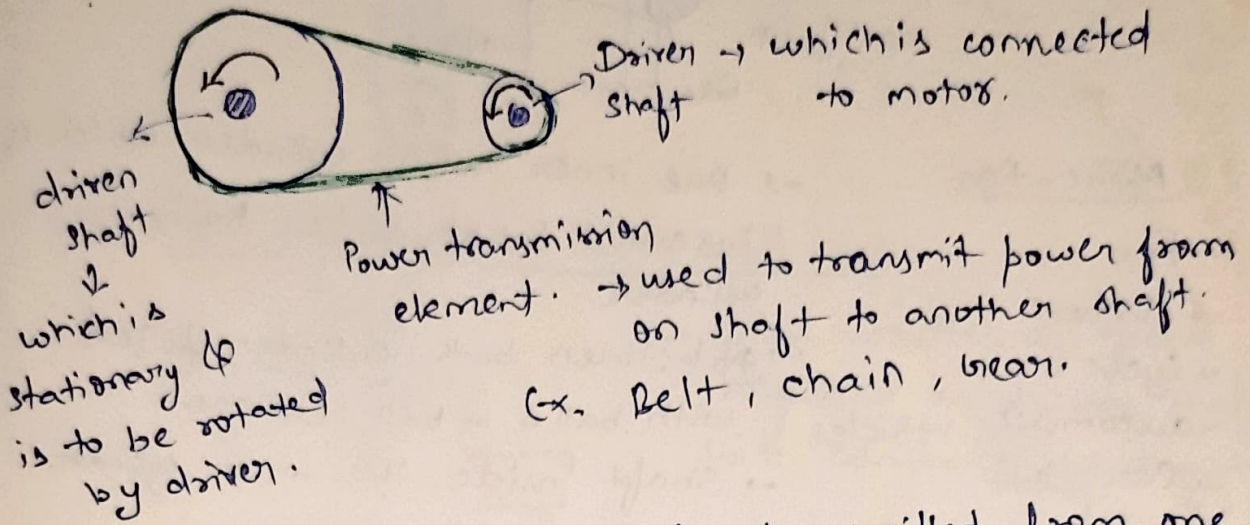 Driven → which is connected
shaft to motor.
driven
shaft
↓
which is
stationary &
is to be rotated
by driver.
Power transmission
element. → used to transmit power from
on shaft to another shaft.
Ex. Belt, chain, Gear.
from one